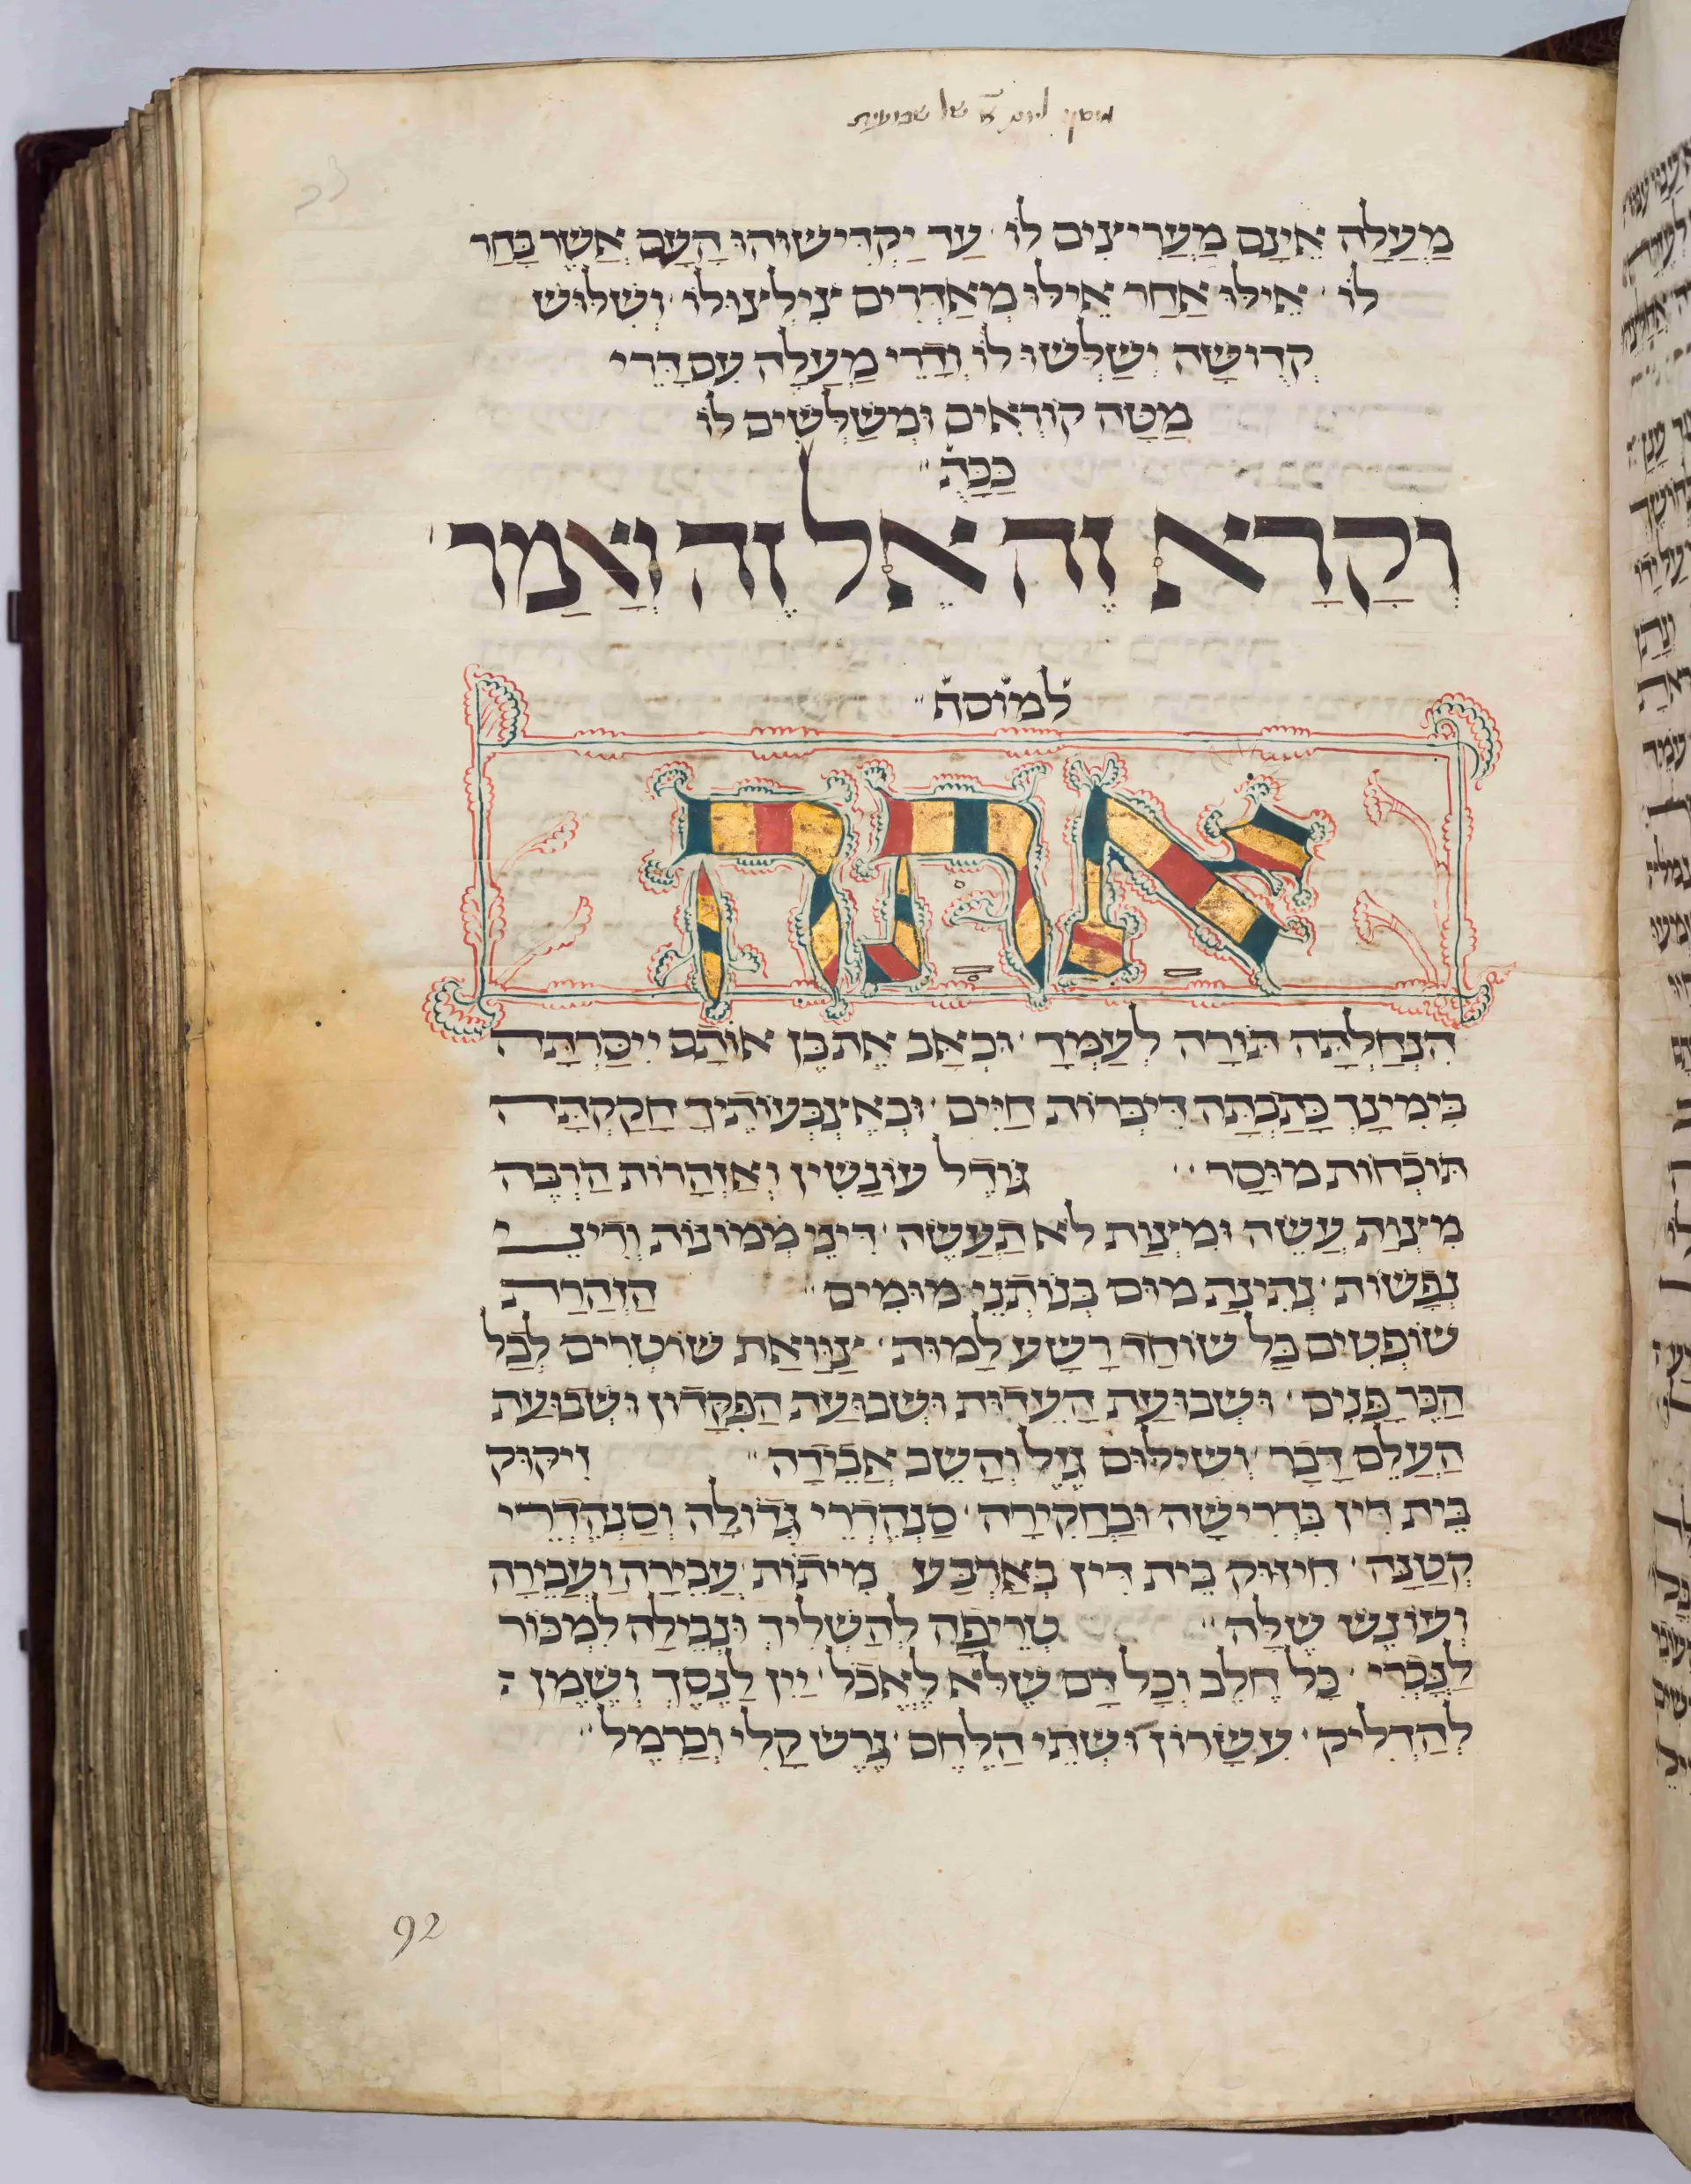 מוסף ליום א' של שבועות
מַעְלָה אֵינָם מַעֲרִיצִים לוֹ עַד יַקְדִּישׁוּהוּ הָעָם אֲשֶׁר בָּחַר
לוֹ אֵילוּ אַחַר אֵילוּ מְאַדְּרִים צִילְצוּלוֹ וְשִׁלּוּשׁ
קְדוּשָּׁה יְשַׁלְּשׁוּ לוֹ וְדָרֵי מַעְלָה עִם דָּרֵי
מַטָּה קוֹרְאִים וּמְשַׁלְּשִׁים לוֹ
כַּכָּתֻ
וְקָרָא זֶה אֶל זֶה וְאָמַר
למוסף
אתה
הִנְחַלְתָּה תּוֹרָה לְעַמְּךָ וּכְאָב אֶת בֶּן אוֹהֵב יִיסַּרְתָּה
בִּימִינְךָ כָּתַבְתָּה דִּיבְּרוֹת חַיִּים וּבְאֶצְבְּעוֹתֶיךָ חָקַקְתָּה
תּוֹכְחוֹת מוּסָר גּוֹדֶל עוֹנָשִׁין וְאַזְהָרוֹת הַרְבֶּה
מִצְוַת עֲשֵׂה וּמִצְוַת לֹא תַעֲשֶׂה דִּינֵי מָמוֹנוֹת וְדִינֵי
נְפָשׁוֹת נְתִינַת מוּם בְּנוֹתְנֵי מוּמִים הַזְהָרַת
שׁוֹפְטִים בַּל שׁוֹחַד רָשָׁע לַמוּת צַוָּאַת שׁוֹטְרִים לְבַל
הַכֵּר פָּנִים וּשְׁבוּעַת הָעֵדוּת וּשְׁבוּעַת הַפִּקָּדוֹן וּשְׁבוּעַת
הַעֲלֵם דָּבָר וְשִׁילּוּם גָּזֵל וְהָשֵׁב אֲבֵידָה זִיקּוּק
בֵּית דִּין בִּדְרִישָׁה וּבַחֲקִירָה סַנְהֶדְרֵי גְדוֹלָה וְסַנְהֶדְרֵי
קְטַנָּה חִיזּוּק בֵּית דִּין בְּאַרְבַּע מִיתוֹת עֲבֵירָה וַעֲבֵירָה
וְעוֹנֶשׁ שֶׁלָּהּ טְרֵיפָה לְהַשְׁלִיךְ וּנְבֵילָה לִמְכּוֹר
לְנָכְרִי כָּל חֵלֶב וְכָל דָּם שֶׁלֹּא לֶאֱכֹל יַיִן לְנֶסֶךְ וְשֶׁמֶן
לְהַדְלִיק עִשָּׂרוֹן וּשְׁתֵּי הַלֶּחֶם גֶּרֶשׂ קָלִי וְכַרְמֶל
92